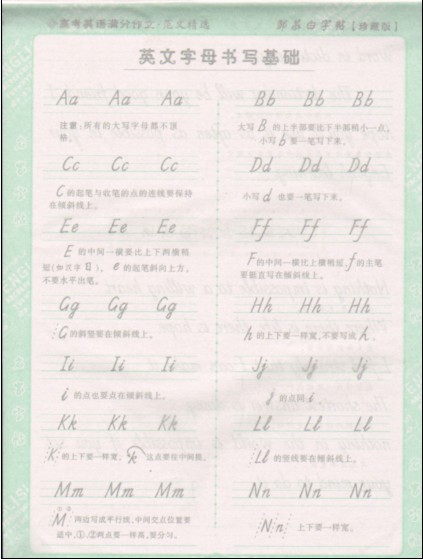 小高考英语满分作文·范文精选 邹慕白字帖【珍藏版】
英文字母书写基础
Aa Aa Aa
注意：所有的大写字母都不顶
格。
Bb Bb Bb
大写B的上半部要比下半部稍小一点，
小写b要一笔写下来。
Cc Cc Cc
C的起笔与收笔的点的连线要保持
在倾斜线上。
Dd Dd Dd
小写d也要一笔写下来。
Ee Ee Ee
E的中间一横要比上下两横稍
短(如汉字日)，e的起笔斜向上方，
不要水平出笔。
Ff Ff Ff
F的中间一横比上横稍短，f的主笔
要挺直写在倾斜线上。
Gg Gg Gg
G的斜竖要在倾斜线上。
Hh Hh Hh
h的上下要一样宽，不要写成h。
Ii Ii Ii
i的点也要点在倾斜线上。
Jj Jj Jj
j的点同i
Kk Kk Kk
K的上下要一样宽。k这点要往中间提。
Ll Ll Ll
Ll的竖线要在倾斜线上。
Mm Mm Mm
M两边写成平行线，中间交点位置要
适中，①、②两点要一样高，要分匀。
Nn Nn Nn
Nn上下要一样宽。